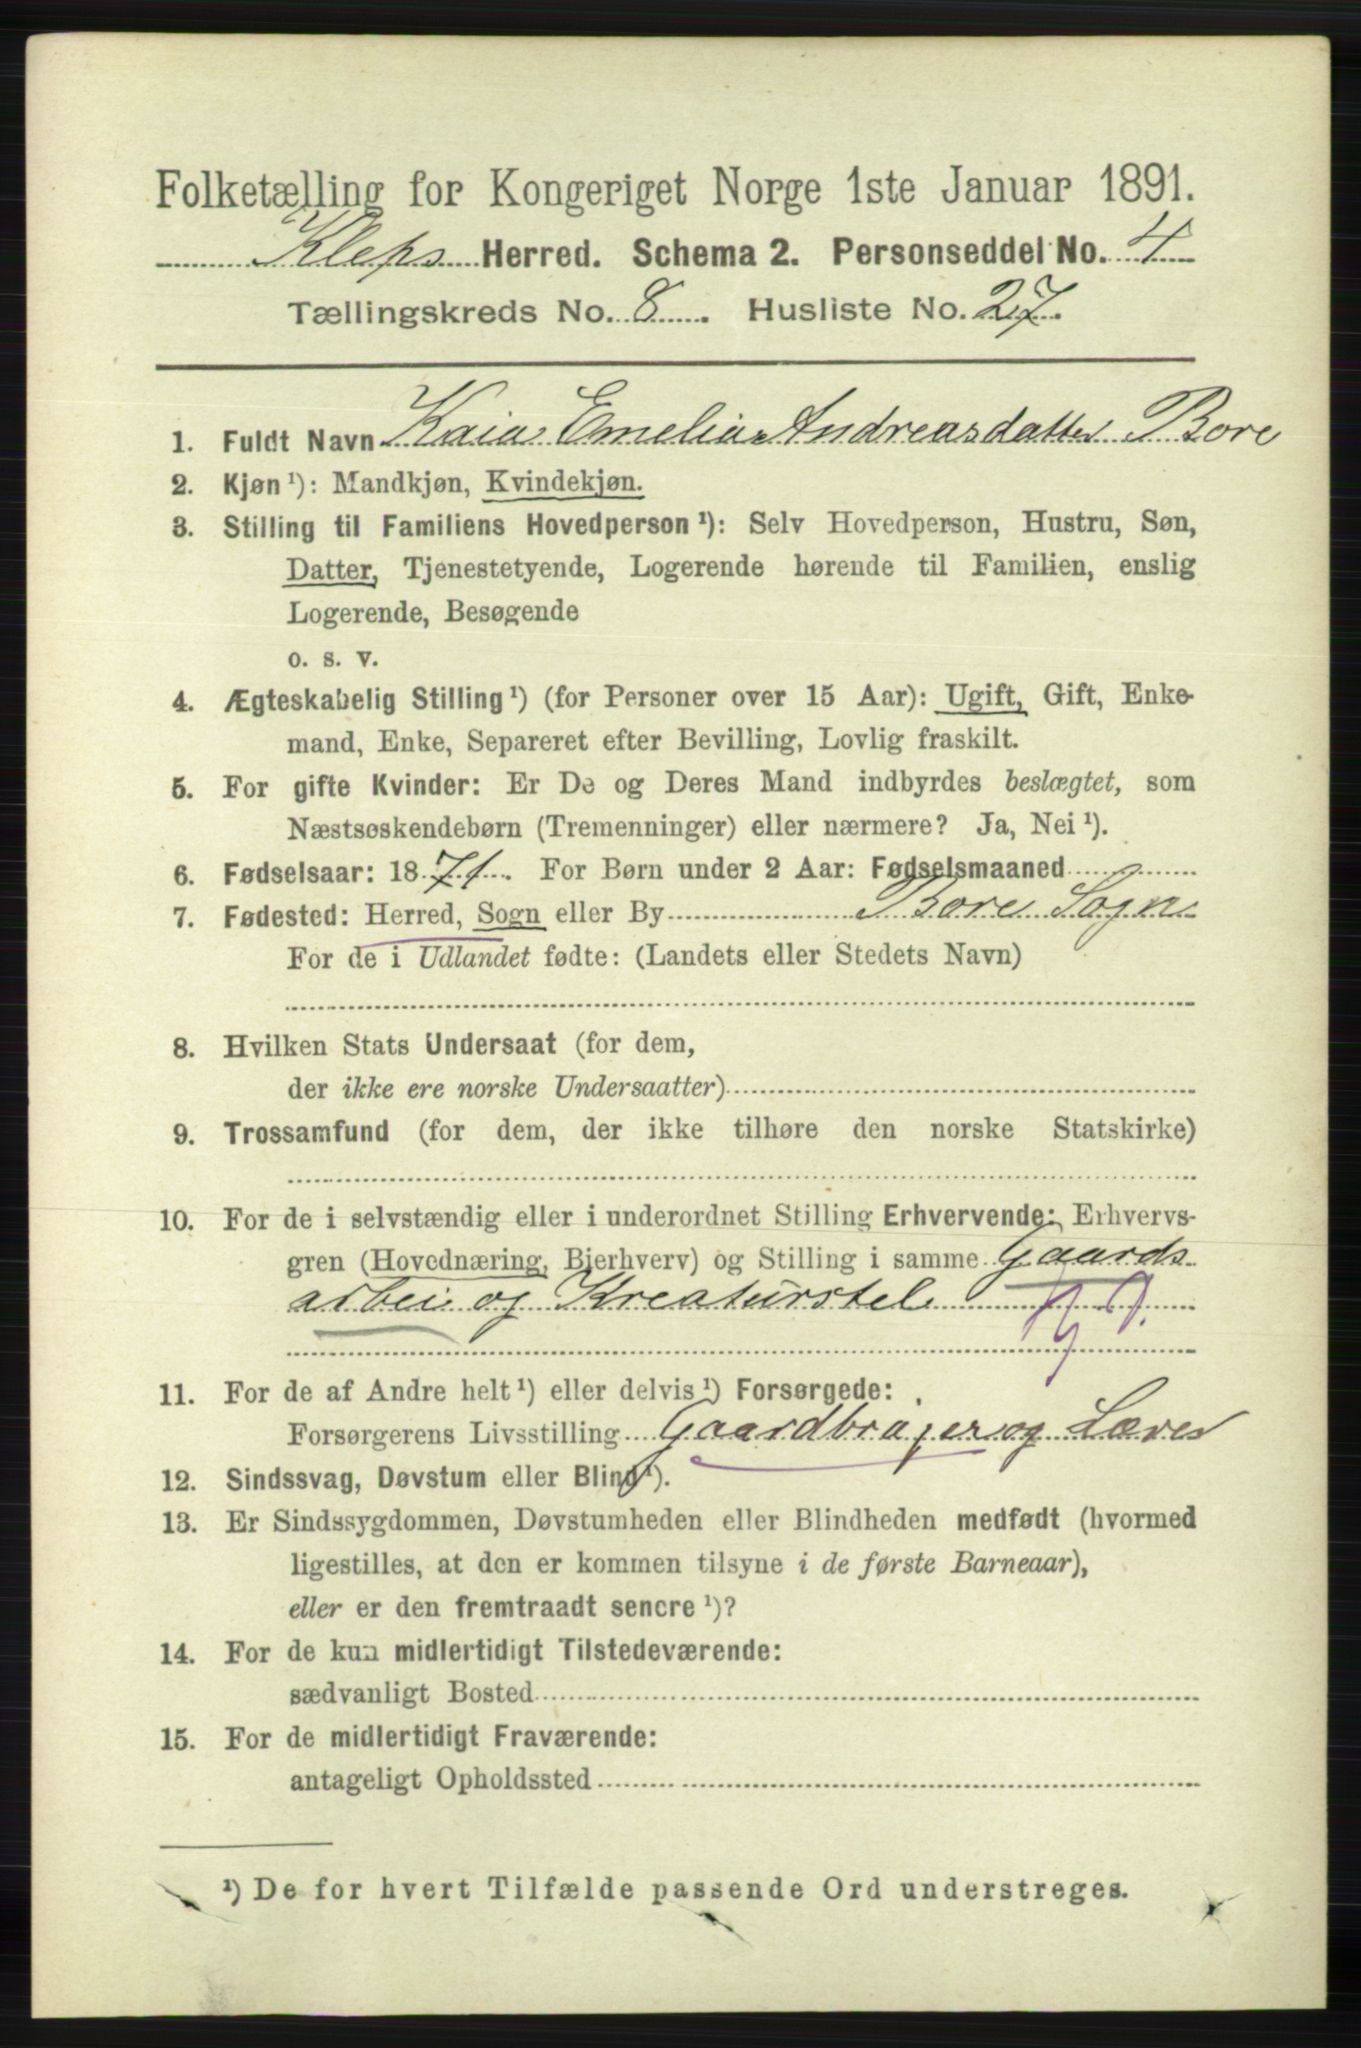 Folketælling for Kongeriget Norge 1ste Januar 1891.
Kleps Herred. Schema 2. Personseddel No. 4
Tællingskreds No. 8. Husliste No. 27.
1. Fuldt Navn Kaia Emelia Andreasdatter Bore
2. Kjøn ¹): Mandkjøn, Kvindekjøn.
3. Stilling til Familiens Hovedperson ¹): Selv Hovedperson, Hustru, Søn,
Datter, Tjenestetyende, Logerende hørende til Familien, enslig
Logerende, Besøgende
o. s. v.
4. Ægteskabelig Stilling ¹) (for Personer over 15 Aar): Ugift, Gift, Enke-
mand, Enke, Separeret efter Bevilling, Lovlig fraskilt.
5. For gifte Kvinder: Er De og Deres Mand indbyrdes beslægtet, som
Næstsøskendebørn (Tremenninger) eller nærmere? Ja, Nei ¹).
6. Fødselsaar: 1871. For Børn under 2 Aar: Fødselsmaaned
7. Fødested: Herred, Sogn eller By Bore Sogn
For de i Udlandet fødte: (Landets eller Stedets Navn)
8. Hvilken Stats Undersaat (for dem,
der ikke ere norske Undersaatter)
9. Trossamfund (for dem, der ikke tilhøre den norske Statskirke)
10. For de i selvstændig eller i underordnet Stilling Erhvervende: Erhvervs-
gren (Hovednæring, Bierhverv) og Stilling i samme Gaards
arbei og Kreaturstel
11. For de af Andre helt ¹) eller delvis ¹) Forsørgede:
Forsørgerens Livsstilling Gaardbruger og Lærer
12. Sindssvag, Døvstum eller Blind ¹).
13. Er Sindssygdommen, Døvstumheden eller Blindheden medfødt (hvormed
ligestilles, at den er kommen tilsyne i de første Barneaar),
eller er den fremtraadt senere ¹)?
14. For de kun midlertidigt Tilstedeværende:
sædvanligt Bosted
15. For de midlertidigt Fraværende:
antageligt Opholdssted
¹) De for hvert Tilfælde passende Ord understreges.